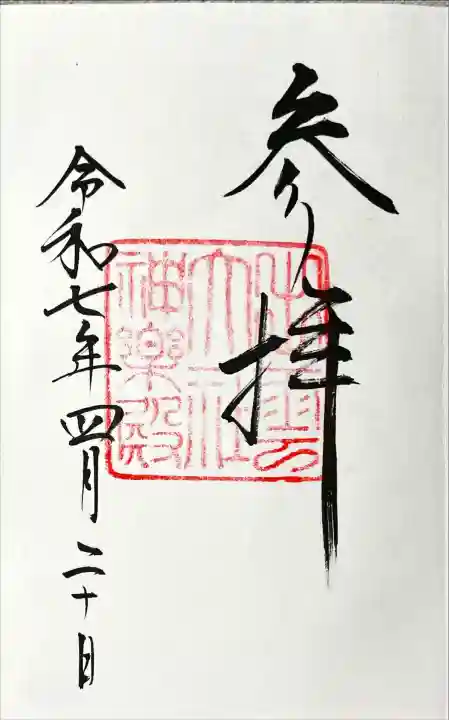 参拝
出雲大社神楽殿
令和七年四月二十日